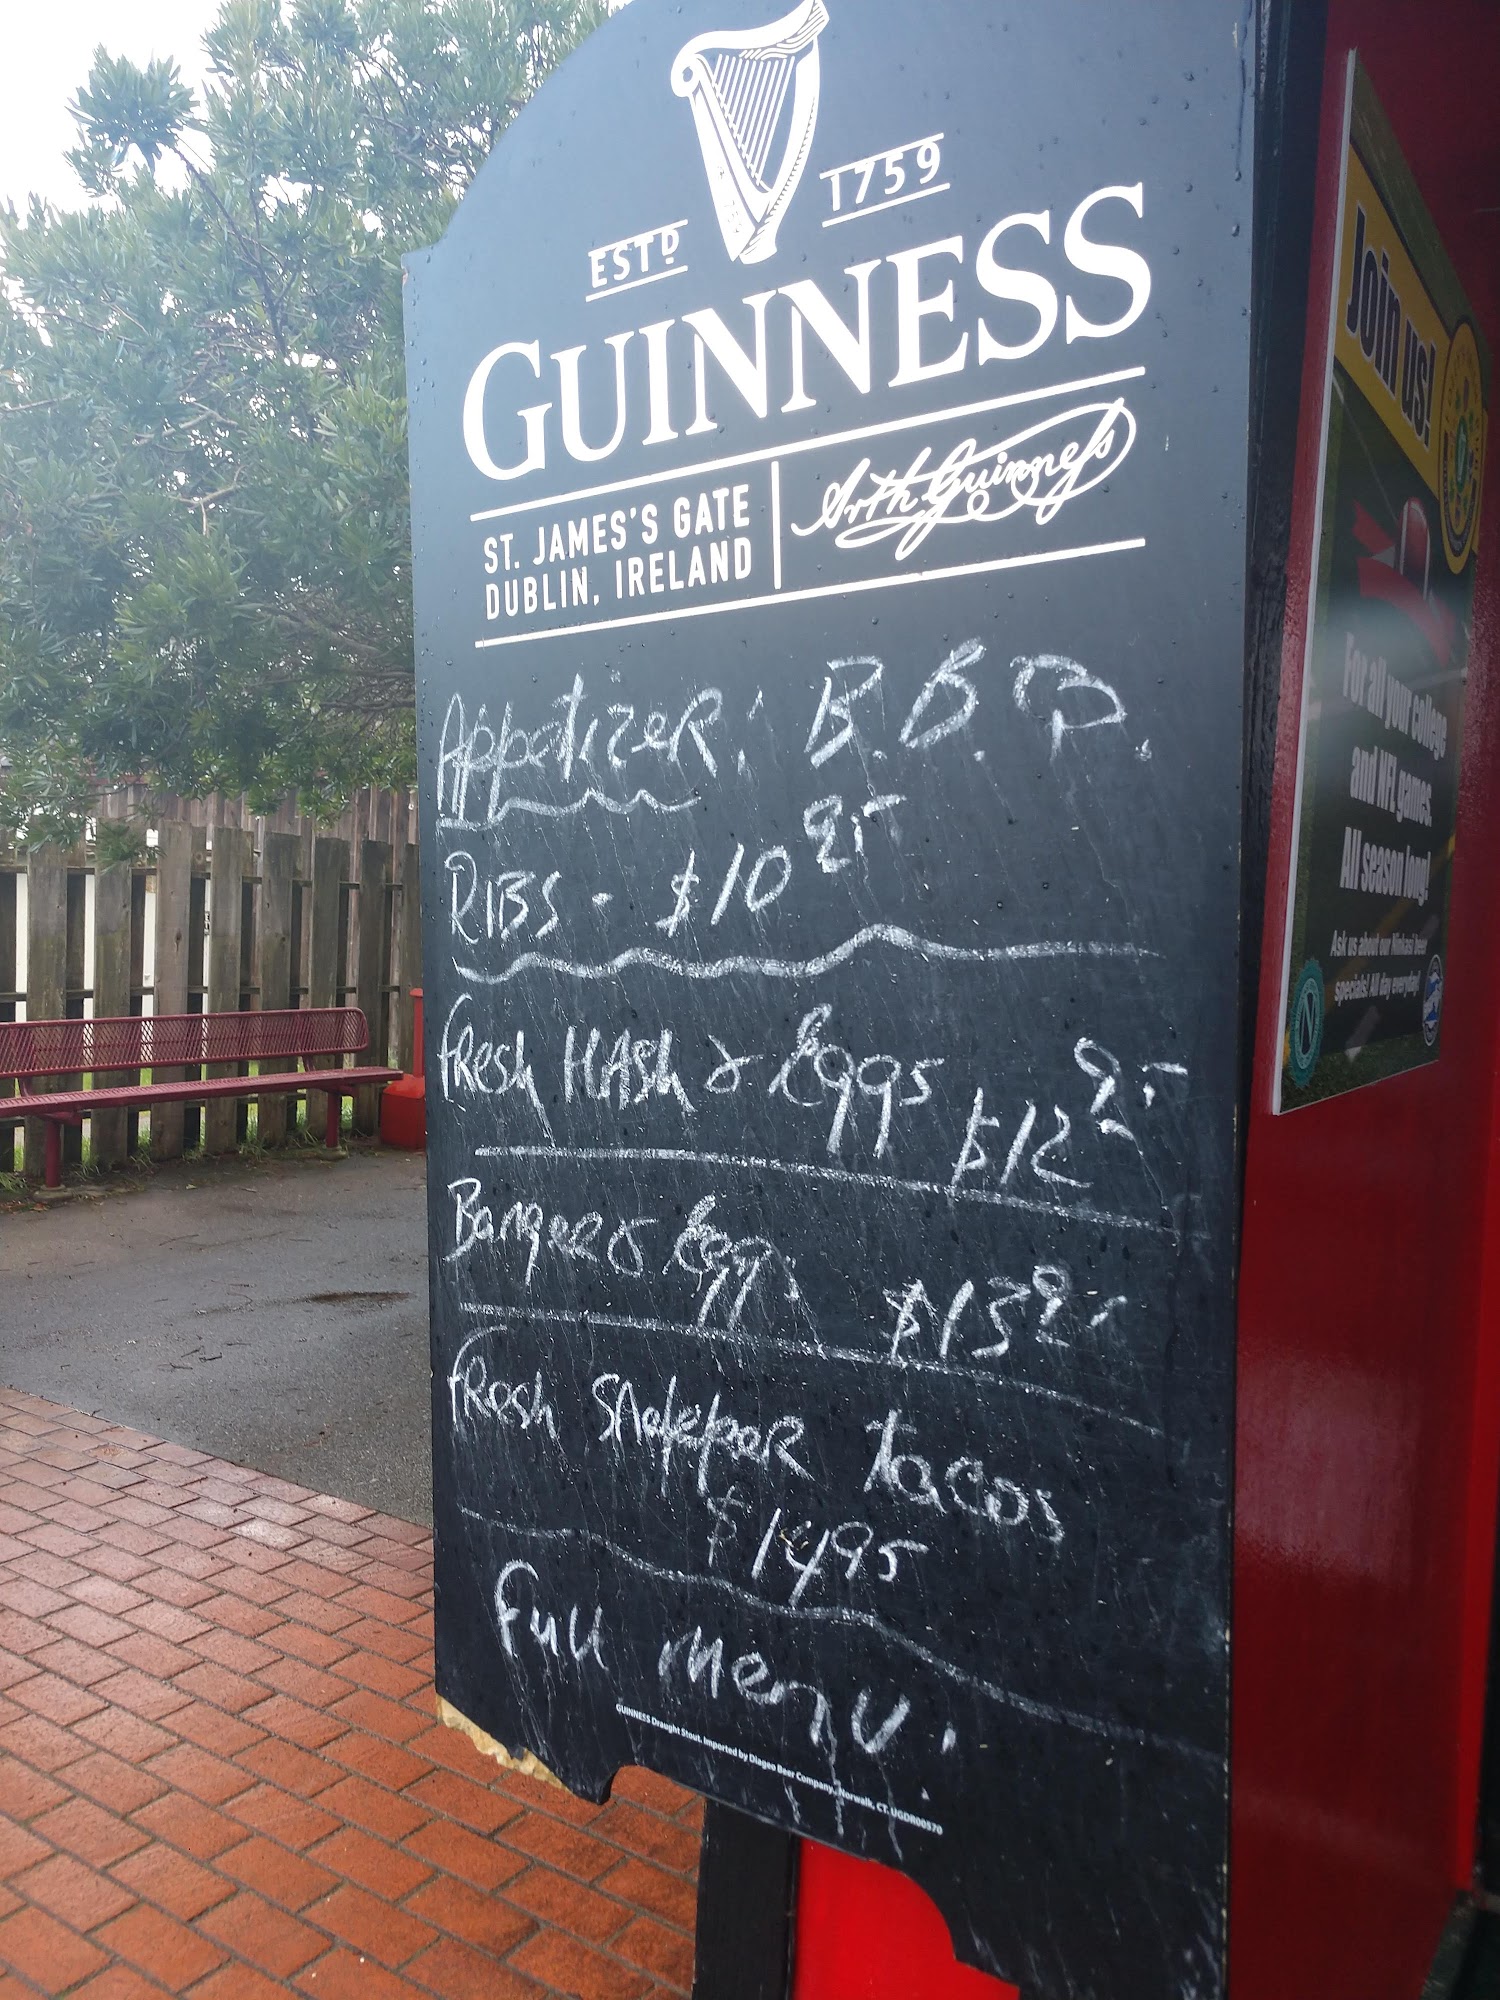 ESTD 1759
GUINNESS
ST. JAMES'S GATE
DUBLIN, IRELAND
Arth Guinness
Appetizer. B.B.Q.
RIBS - $10 95
Fresh HASH & Eggs $12 95
Banger & Eggs $13 95
Fresh Snapper tacos
$14 95
Full menu.
GUINNESS Draught Stout. Imported by Diageo Beer Company, Norwalk, CT. UGDR00570
Join us!
For all your college
and NFL games.
All season long!
Ask us about our Ninkasi beer
specials! All day everyday!
N